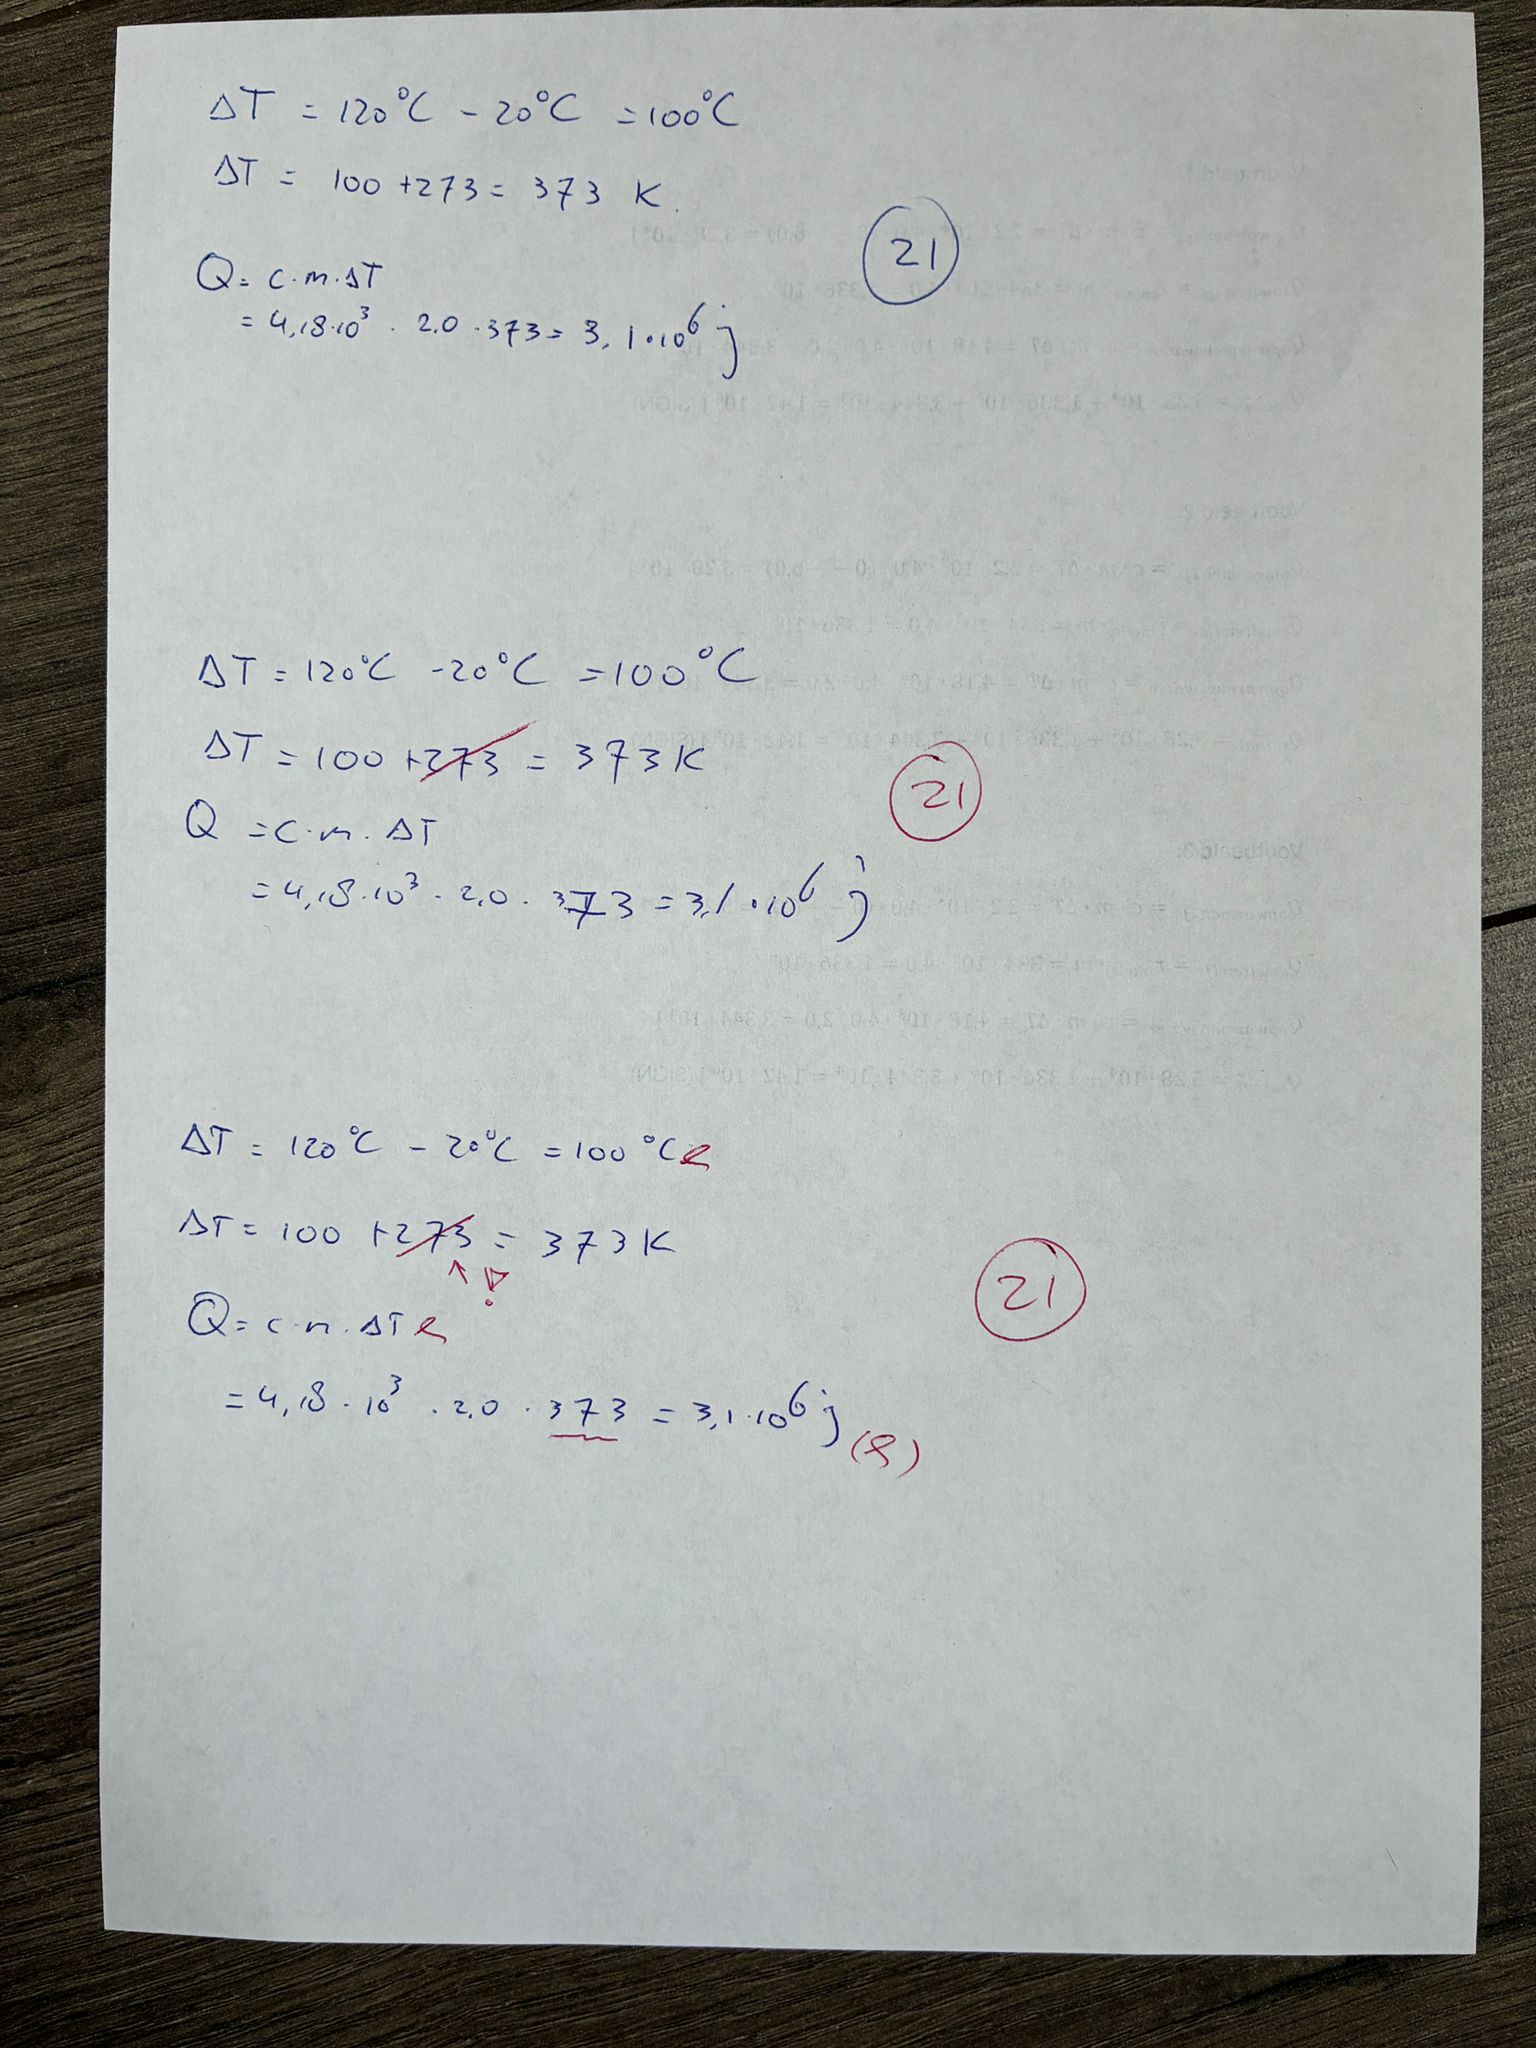 ΔT = 120°C - 20°C = 100°C
ΔT = 100 + 273 = 373 K.
21
Q = c.m.ΔT
= 4,18·10³ · 2,0 · 373 = 3,1·10⁶ j
ΔT = 120°C - 20°C = 100°C
ΔT = 100 + 273 = 373 K
21
Q = c.m. ΔT
= 4,18·10³ · 2,0 · 373 = 3,1·10⁶ j
ΔT = 120°C - 20°C = 100°C
ΔT = 100 + 273 = 373 K
!
21
Q = c.m.ΔT
= 4,18 · 10³ · 2,0 · 373 = 3,1·10⁶ j